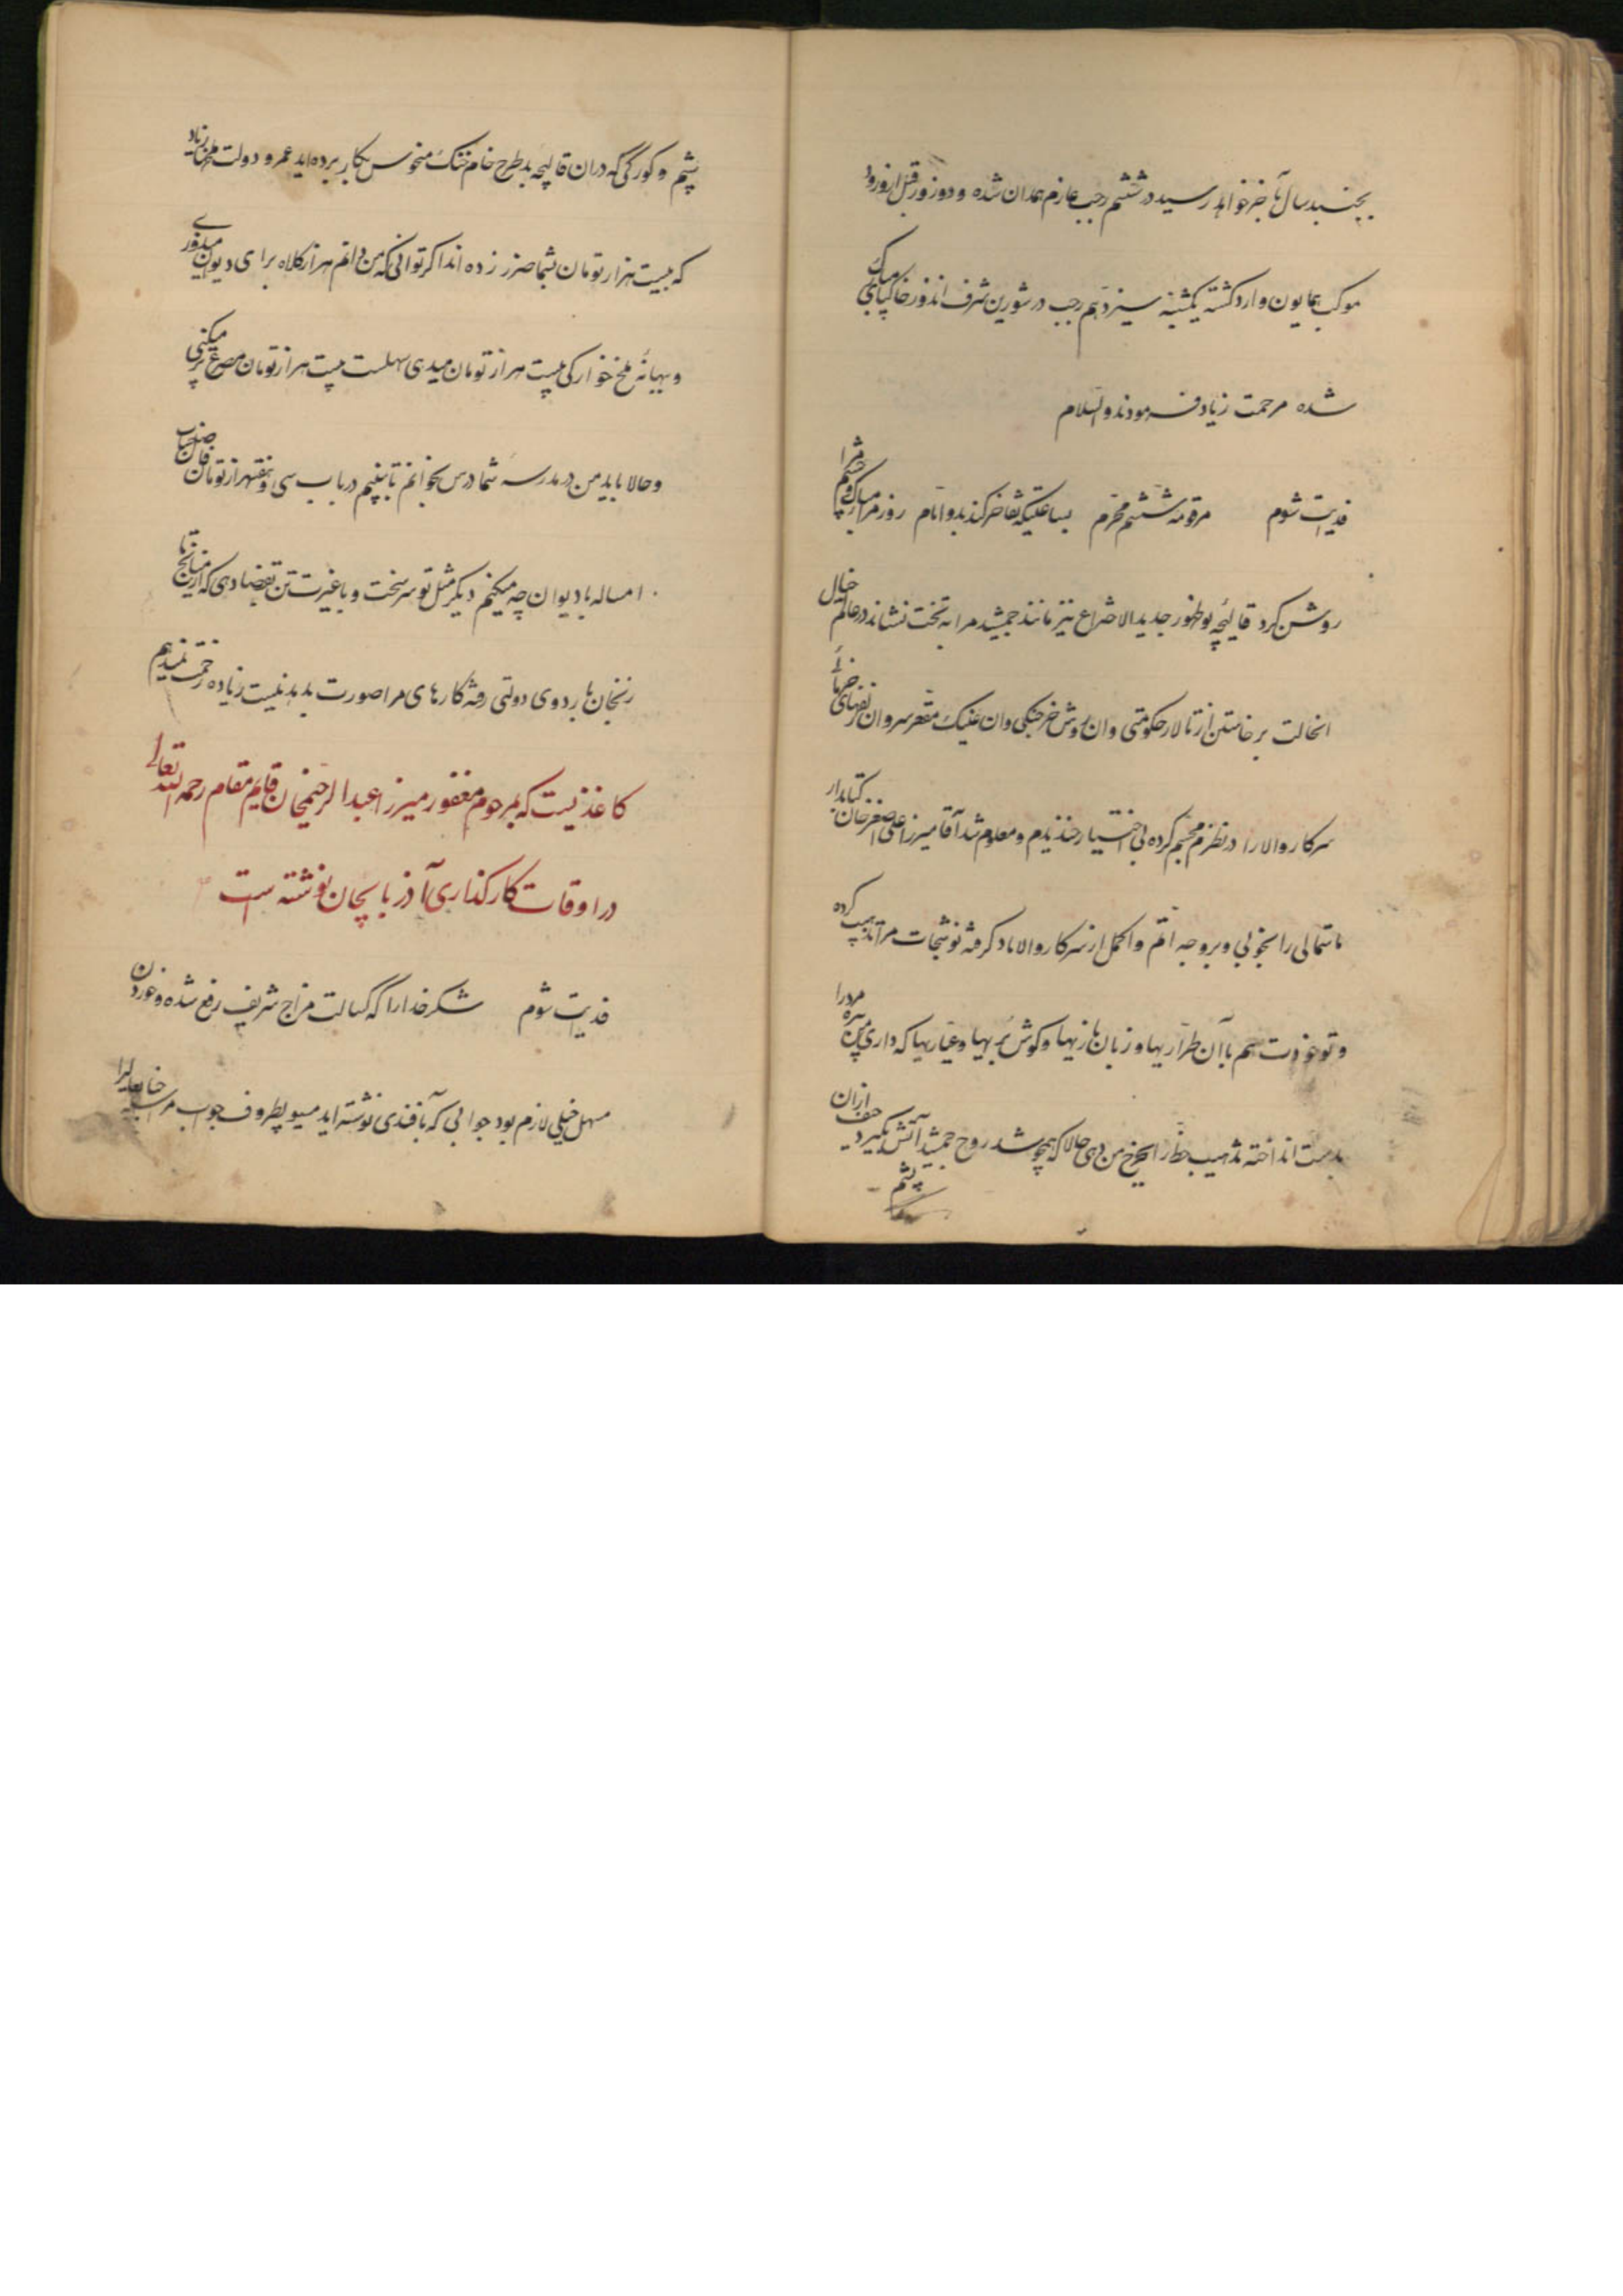 بجنبد سال بآخر خواهد رسید در ششم رجب عازم همدان شده و دو روز قبل از ورود
موکب همایون وارد گشته یکشنبه سیزدهم رجب در شورین شرف اندوز خاکپای مبارک
شده مرحمت زیاد فرمودند والسلام
فدایت شوم مرقومه ششم محرم بساعتیکه تفاخر کند بدو ایام روز مرا مبارک و چشم مرا
روشن کرد قالیچه بوطهور جدید الاختراع نیز مانند جمشید مرا به تخت نشاند در عالم خیال
انحالت برخاستن از تالار حکومتی وان روش خرچنگی وان عینک مقعر سر وان
سرکار والا را در نظرم مجسم کرده بی اختیار خندیدم و معلوم شد آقا میرزا علی اصغر خان کتابدار
ماستمالی را بخوبی و بر وجه اتم و اکمل از سرکار والا یاد گرفته نوشتجات مرا تذهیب کرده
و تو خودت هم با آن طراریها و زبان بازیها و گوش بریها و عیاریها که داری پیره مرد را
بدست انداخته تذهیب خط را بخرج من دهی حالا که همچو شد روح جمشید آتش بگیرد حیف ازان
پشم
پشم و کورگی که دران قالیچه بد طرح خام خنک منحوس بکار برده اید عمر و دولت ملخها زیاد
که بیست هزار تومان بشما ضرر زده اند اگر توانی که من دانم هزار کلاه برای دیوان میدوزی
و ببهانه ملخ خوارگی بیست هزار تومان میدی سهلست بیست هزار تومان مصرع پر میکنی
و حالا باید من در مدرسه شما درس بخوانم تا ببینم در باب سی و هفتهزار تومان فاضل حساب
امساله با دیوان چه میکنم دیگر مثل تو سر سخت و با غیرت تن بقضا دهی که از میانج تا
زنجان باردوی دولتی رفته کارهای مرا صورت بدهد نیست زیاده زحمت نمیدهم
کاغذیست که بمرحوم مغفور میرزا عبدالرحیمخان قایم مقام رحمه الله تعالی
در اوقات کارگذاری آذربایجان نوشته است
فدایت شوم شکر خدا را که کسالت مزاج شریف رفع شده و خوردن
مسهل خیلی لازم بود جوابی که بافندی نوشته اید مسیو پطروف جواب مراسله